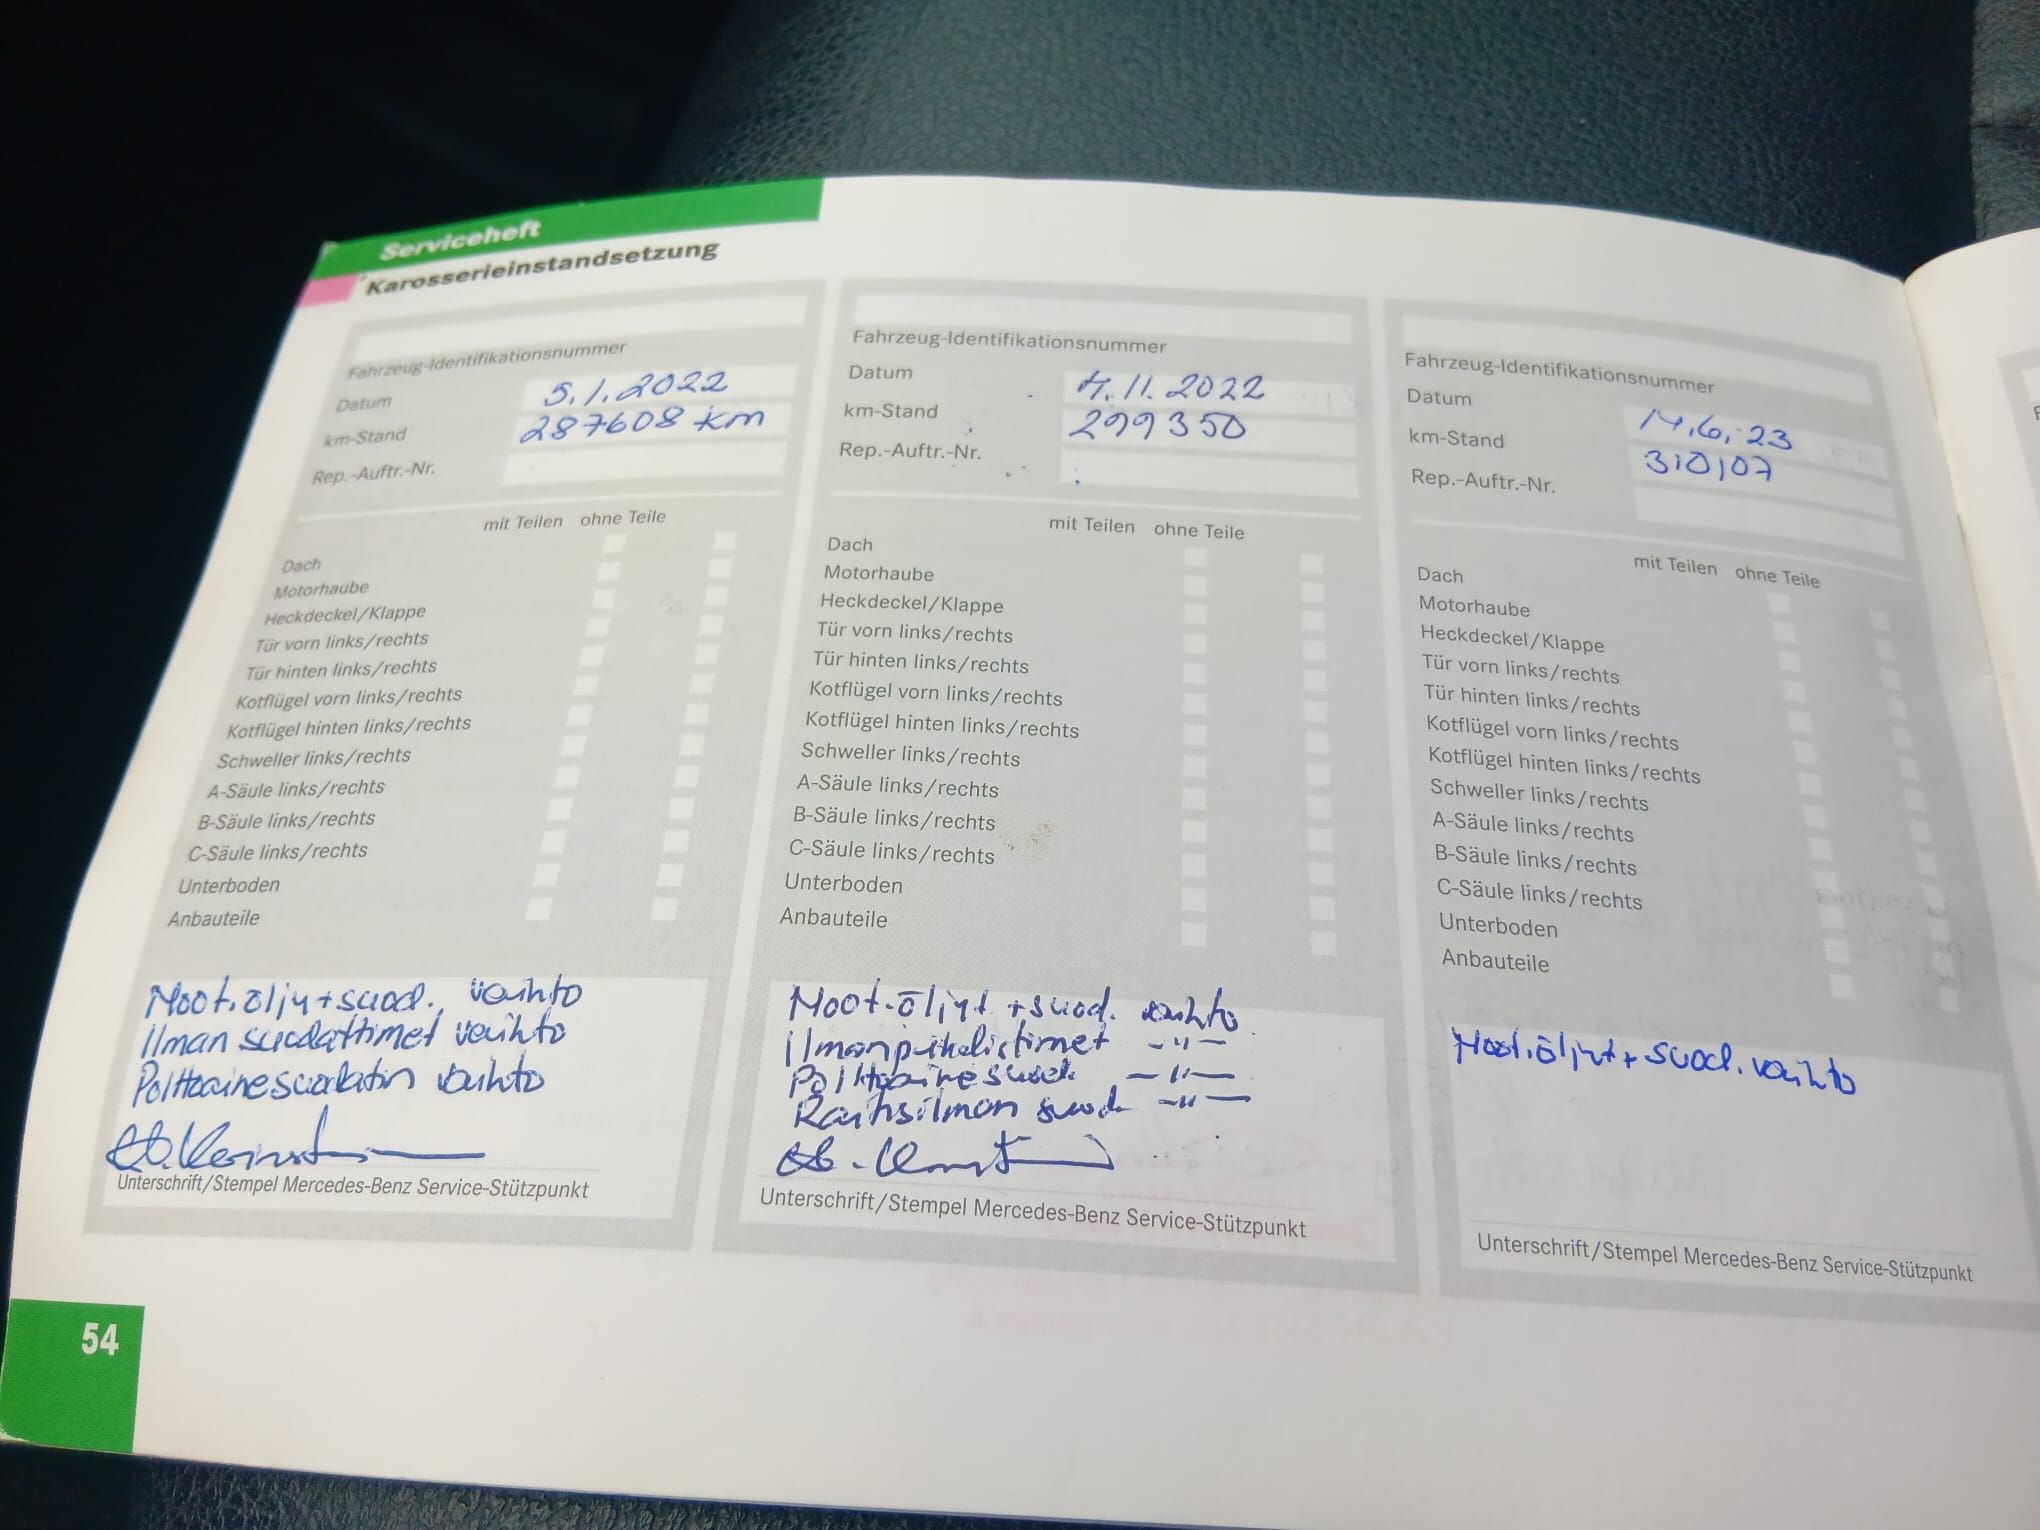 Serviceheft
Karosserieinstandsetzung
Fahrzeug-Identifikationsnummer
Datum 5.1.2022
km-Stand 287608 km
Rep.-Auftr.-Nr.
mit Teilen ohne Teile
Dach
Motorhaube
Heckdeckel/Klappe
Tür vorn links/rechts
Tür hinten links/rechts
Kotflügel vorn links/rechts
Kotflügel hinten links/rechts
Schweller links/rechts
A-Säule links/rechts
B-Säule links/rechts
C-Säule links/rechts
Unterboden
Anbauteile
Moot.öljy+suod. vaihto
Ilman suodattimet vaihto
Polttoainesuodatin vaihto
Unterschrift/Stempel Mercedes-Benz Service-Stützpunkt
Fahrzeug-Identifikationsnummer
Datum 4.11.2022
km-Stand 299350
Rep.-Auftr.-Nr.
mit Teilen ohne Teile
Dach
Motorhaube
Heckdeckel/Klappe
Tür vorn links/rechts
Tür hinten links/rechts
Kotflügel vorn links/rechts
Kotflügel hinten links/rechts
Schweller links/rechts
A-Säule links/rechts
B-Säule links/rechts
C-Säule links/rechts
Unterboden
Anbauteile
Moot.öljyt +suod. vaihto
-"-
Polttoainesuod. -"-
Raitisilman suod. -"-
Unterschrift/Stempel Mercedes-Benz Service-Stützpunkt
Fahrzeug-Identifikationsnummer
Datum 14.6.23
km-Stand 310107
Rep.-Auftr.-Nr.
mit Teilen ohne Teile
Dach
Motorhaube
Heckdeckel/Klappe
Tür vorn links/rechts
Tür hinten links/rechts
Kotflügel vorn links/rechts
Kotflügel hinten links/rechts
Schweller links/rechts
A-Säule links/rechts
B-Säule links/rechts
C-Säule links/rechts
Unterboden
Anbauteile
Moot.öljyt + suod. vaihto
Unterschrift/Stempel Mercedes-Benz Service-Stützpunkt
54